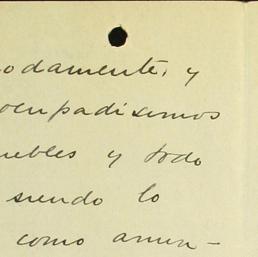 odamente, y
ocupadísimos
uebles y todo
siendo lo
como amun-